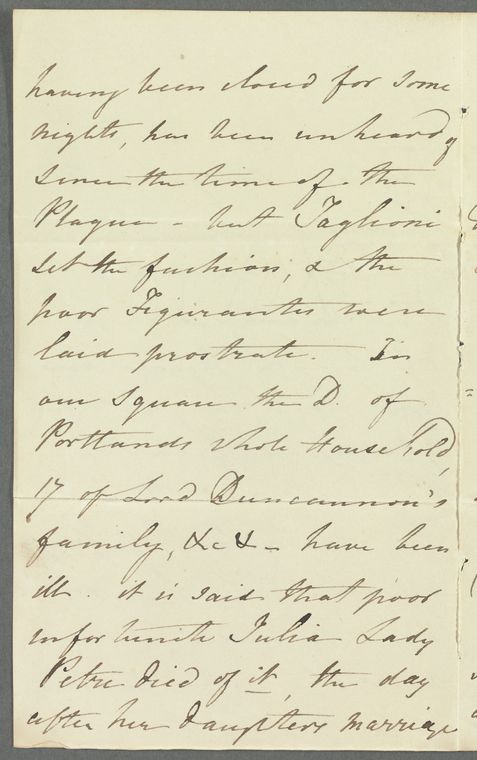 having been closed for some
nights, has been unheard of
since the time of the
Plague - but Taglioni
set the fashion, & the
poor Figurantes were
laid prostrate. In
our Square the D. of
Portlands whole Household,
17 of Lord Duncannon's
family, &c & - have been
ill. it is said that poor
unfortunate Julia Lady
Petre died of it, the day
after her daughters marriage